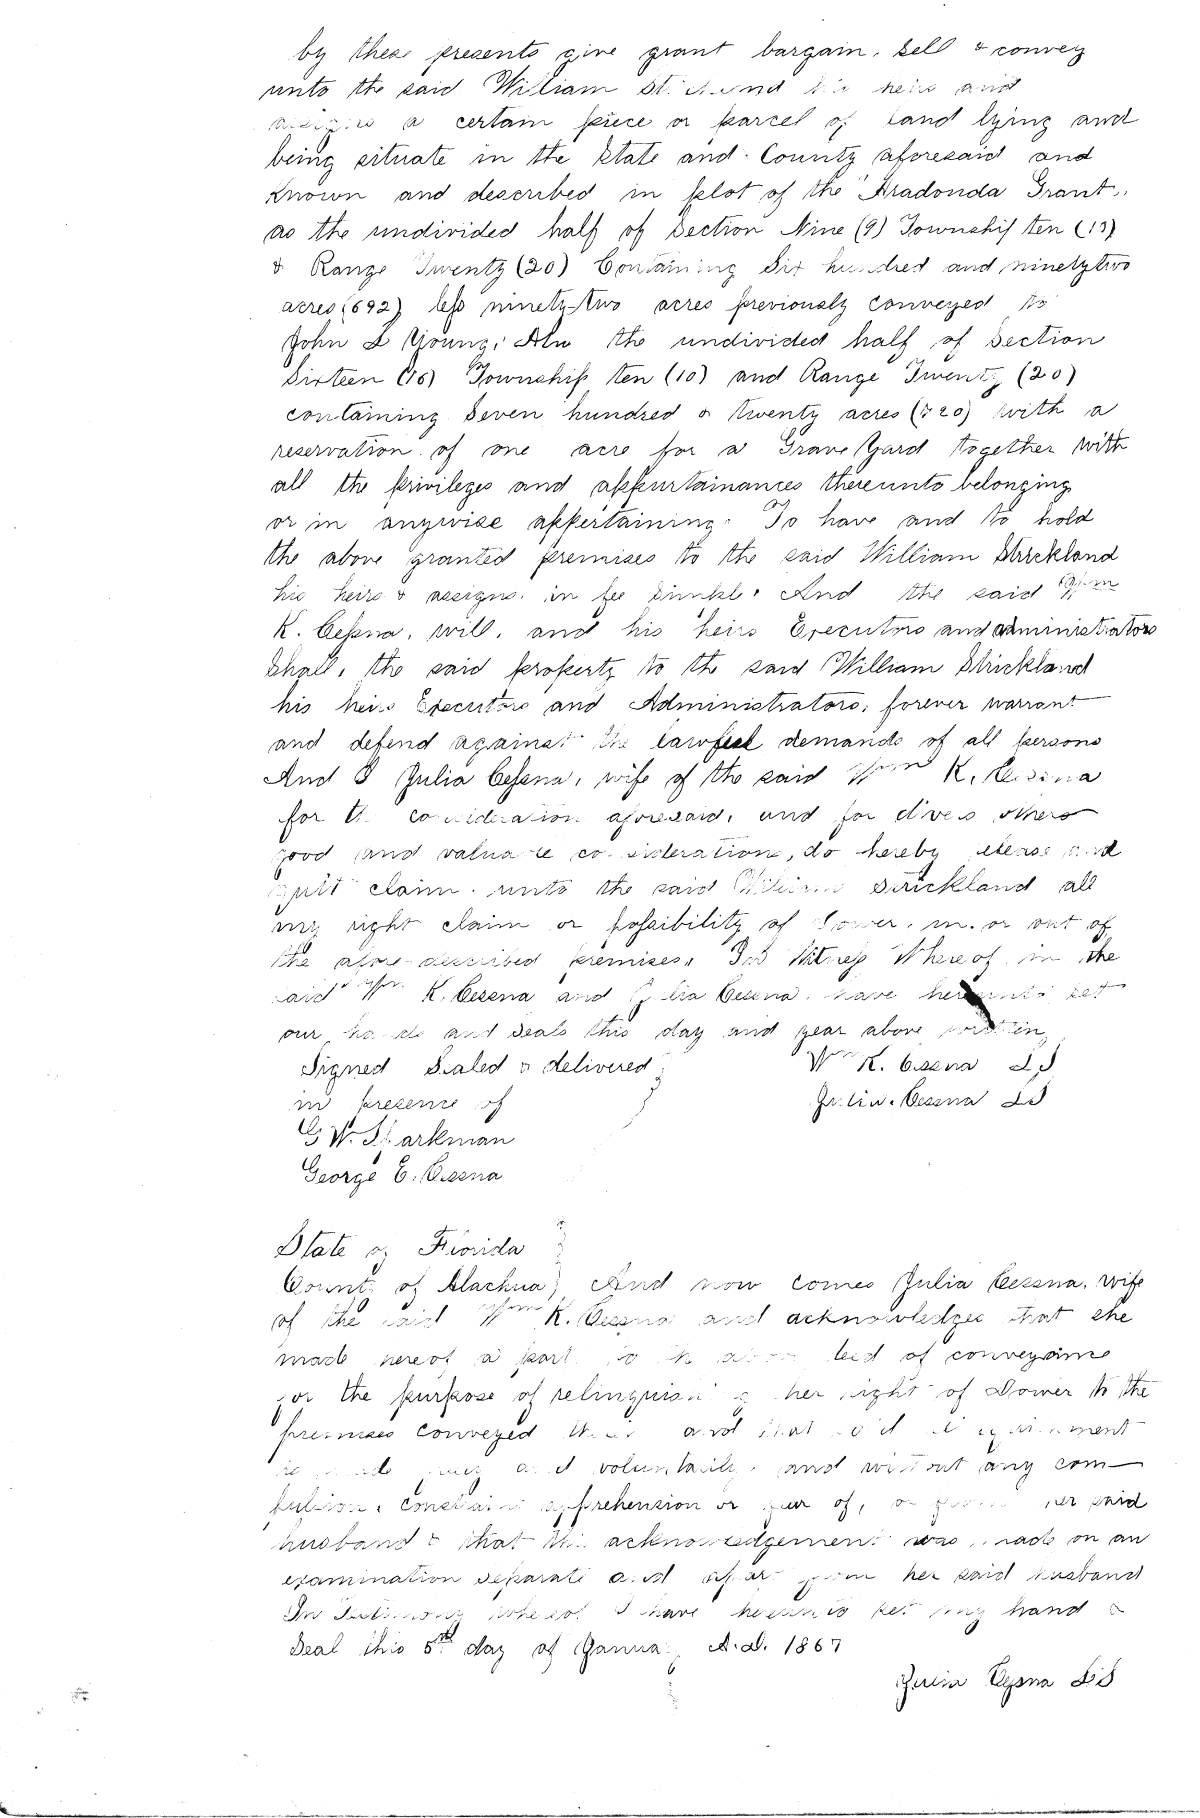 by these presents give grant bargain, sell & convey
unto the said William his heirs and
assigns a certain piece or parcel of land lying and
being situate in the State and County aforesaid and
known and described in plot of the "Aradonda Grant"
as the undivided half of Section Nine (9) Township ten (10)
& Range Twenty (20) Containing Six hundred and ninety two
acres (692) less ninety-two acres previously conveyed to
John L Young, Also the undivided half of Section
Sixteen (16) Township ten (10) and Range Twenty (20)
containing Seven hundred & twenty acres (720) with a
reservation of one acre for a Grave Yard together with
all the privileges and appurtainances thereunto belonging
or in anywise appertaining. To have and to hold
the above granted premises to the said William Strickland
his heirs & assigns in fee Simple. And the said Wm
K. Cessna, will, and his heirs Executors and administrators
Shall, the said property to the said William Strickland
his heirs Executors and Administrators, forever warrant
and defend against the lawful demands of all persons
And I Julia Cessna, wife of the said Wm K. Cessna
for the consideration aforesaid, and for divers others
good and valuable considerations, do hereby release and
quit claim unto the said William Strickland all
my right claim or possibility of Dower, in or out of
the afore-described premises. In Witness Whereof, we the
said Wm K. Cessna and Julia Cessna have hereunto set
our hands and Seals this day and year above written
Signed Sealed & delivered Wm K. Cessna LS
in presence of Julia Cessna LS
G W. Sparkman
George E. Cessna
State of Florida
County of Alachua) And now comes Julia Cessna, wife
of the said Wm K. Cessna and acknowledges that she
made hereof a part to the above deed of conveyance
for the purpose of relinquishing her right of Dower to the
premises conveyed and that said
made freely and voluntarily and without any com—
pulsion, constraint apprehension or fear of, or from her said
husband & that this acknowledgement was made on an
examination separate and apart from her said husband
In Testimony whereof I have hereunto set my hand &
Seal this 5th day of January A.D. 1867
Julia Cessna LS